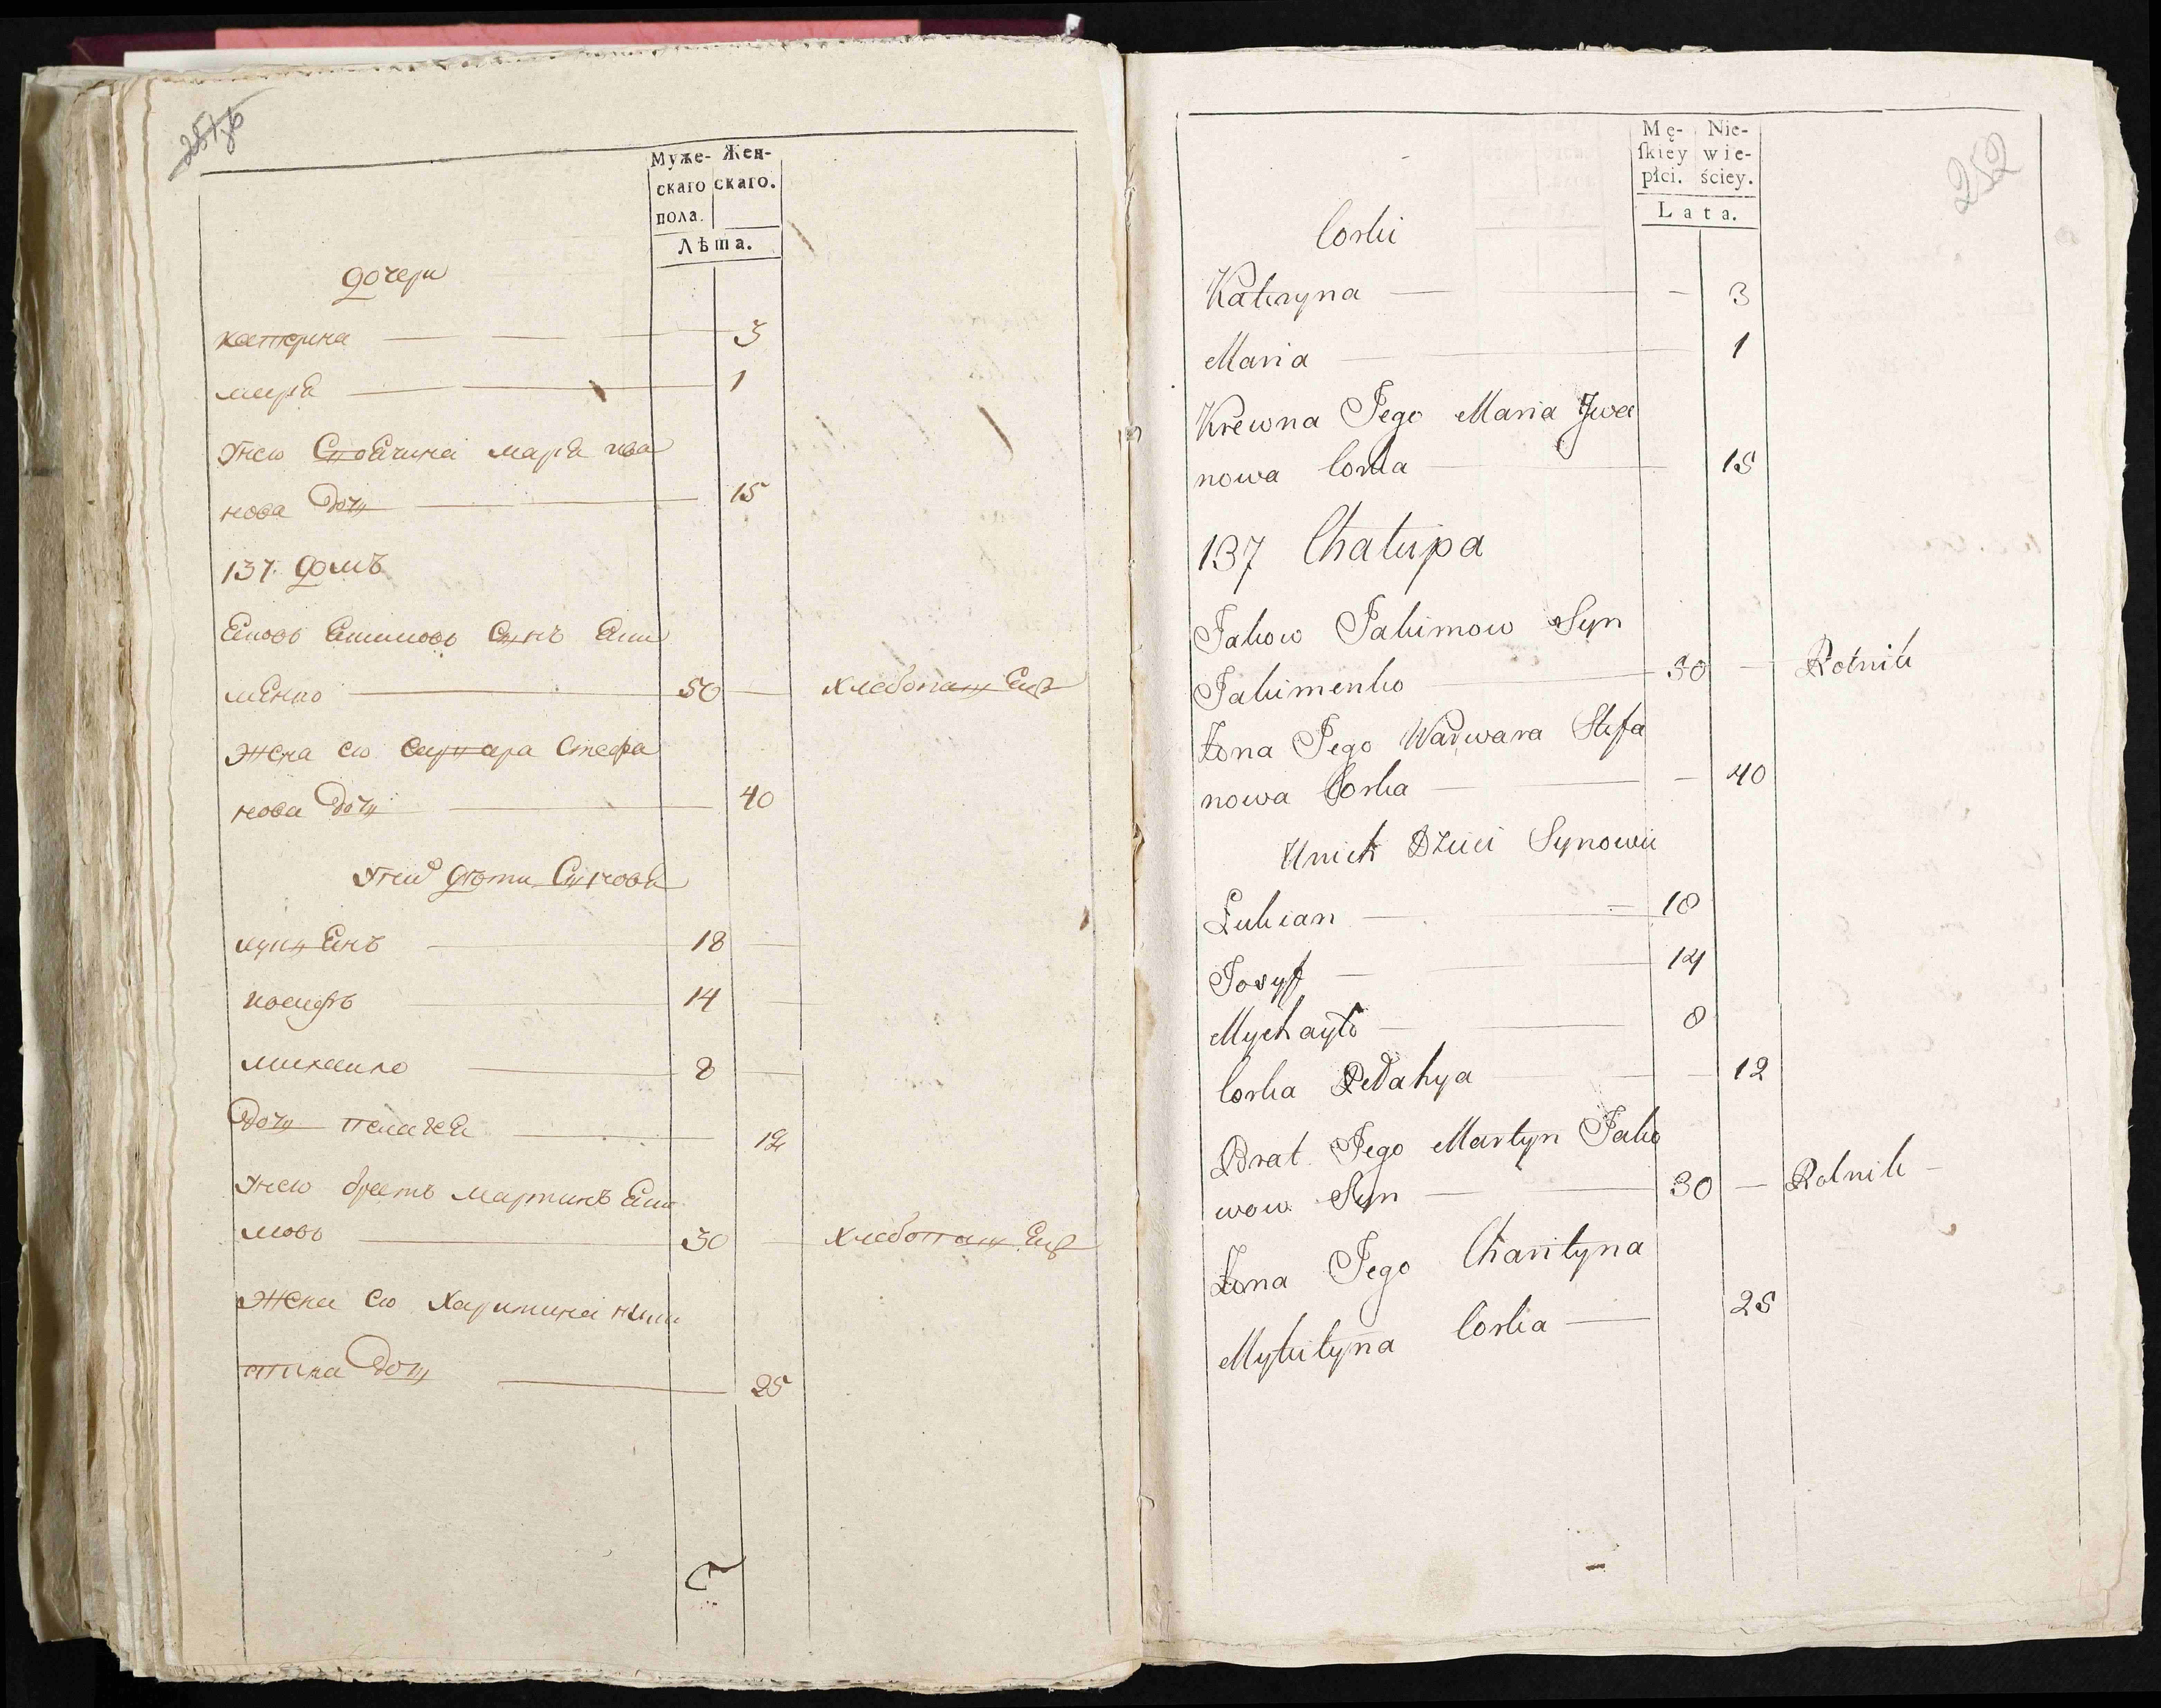 Муже- Жен-
скаго скаго.
пола.
Лѣта.
дочери
катерина 3
маря 1
нова дочь 15
137. домъ
Яковъ Якимовъ Сынъ Яки
менко 50 — хлебопашецъ
Жена его варвара Стефа
нова дочь 40
дѣти Сыновя
лукянъ 18
иосифъ 14
михаило 8
дочь пелагея 12
братъ мартинъ Яки
мовъ 30 — хлебопашецъ
Жена его Харитина ники
тина дочь 25
252
Mę- Nie-
ſkiey wie-
płci. ściey.
Lata.
Corki
Kateryna — 3
Maria — 1
Krewna Jego Maria Jwa
nowa Corka — 15
137 Chałupa
Jakow Jakimow Syn
Jakimenko — 50 — Rolnik
Żona Jego Warwara Stefa
nowa Corka — 40
Unich Dzieci Synowie
Łukian — 18
Josyf — 14
Mychayło — 8
Corka Pełahya — 12
Brat Jego Martyn Jako
wow Syn — 30 — Rolnik —
Żona Jego Charityna
Mykityna Corka — 25